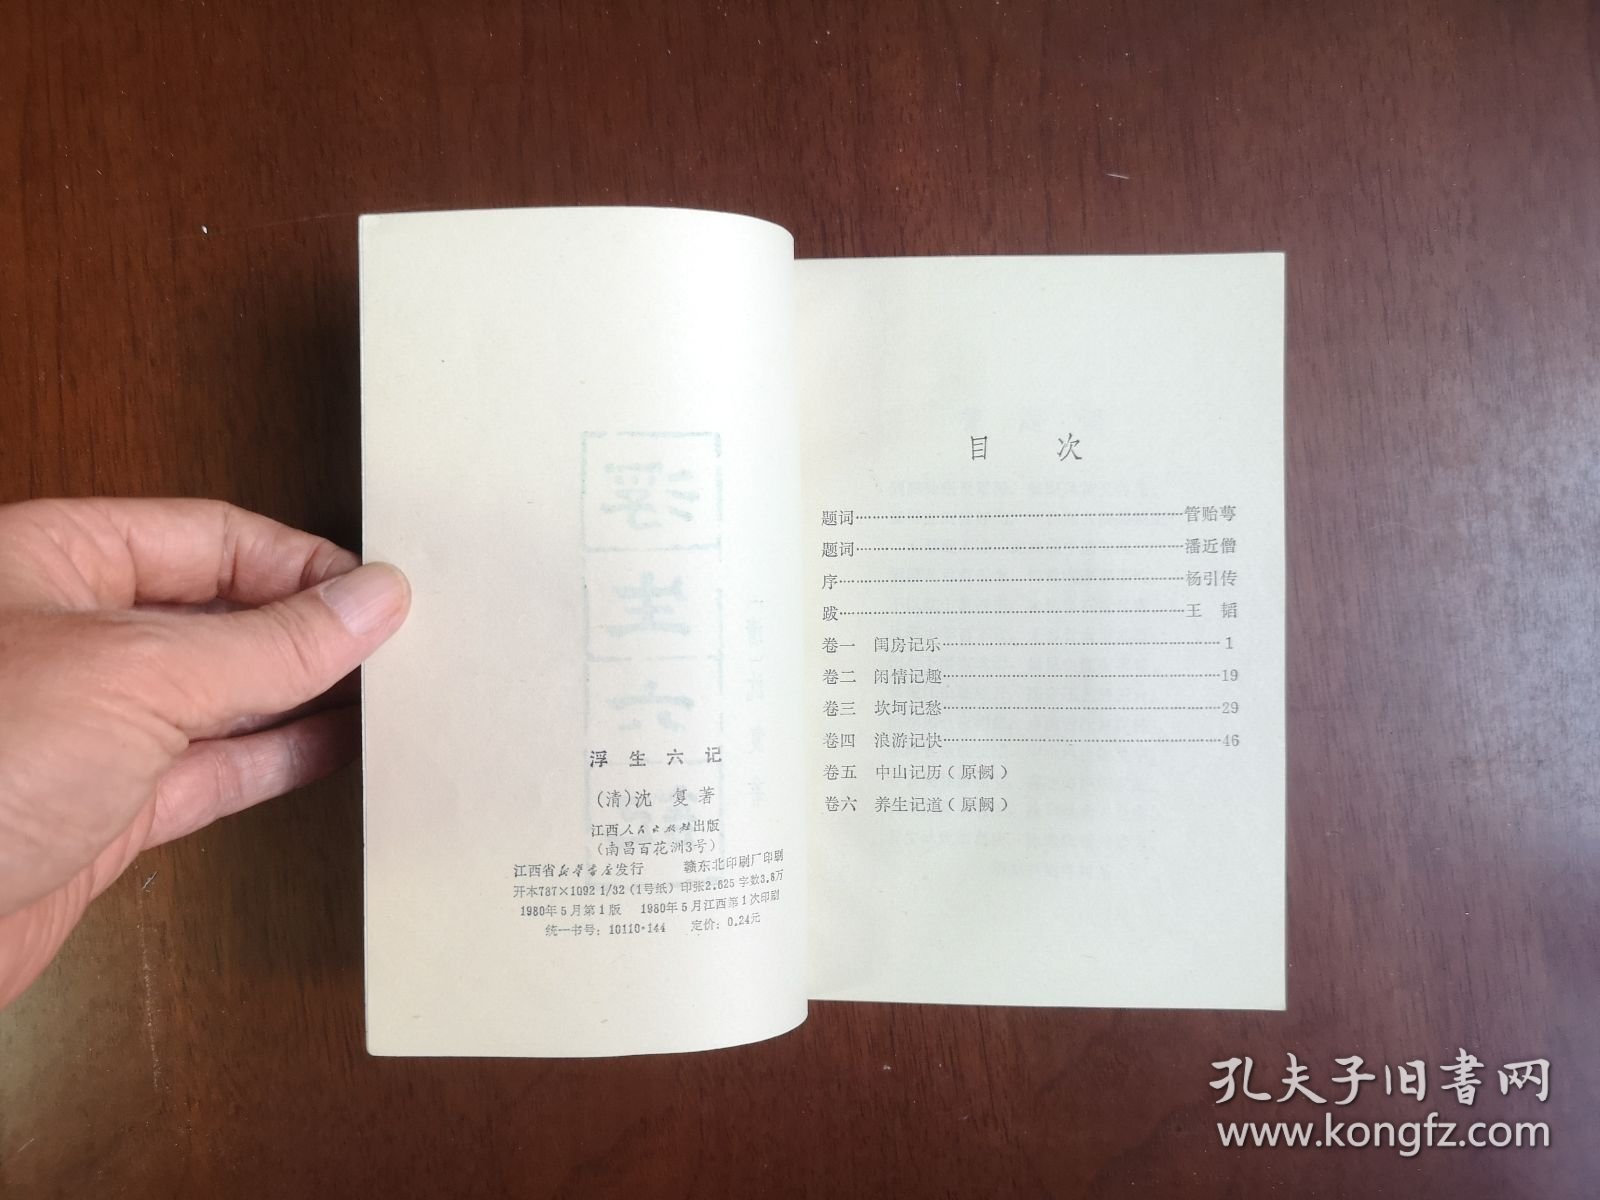 浮生六记
(清)沈 复著
江西人民出版社出版
(南昌百花洲3号)
江西省新华书店发行 赣东北印刷厂印刷
开本787×1092 1/32 (1号纸) 印张2.625 字数3.8万
1980年5月第1版 1980年5月江西第1次印刷
统一书号：10110·144 定价：0.24元
目 次
题词……管贻萼
题词……潘近僧
序……杨引传
跋……王 韬
卷一 闺房记乐……1
卷二 闲情记趣……19
卷三 坎坷记愁……29
卷四 浪游记快……46
卷五 中山记历(原阙)
卷六 养生记道(原阙)
孔夫子旧书网
www.kongfz.com